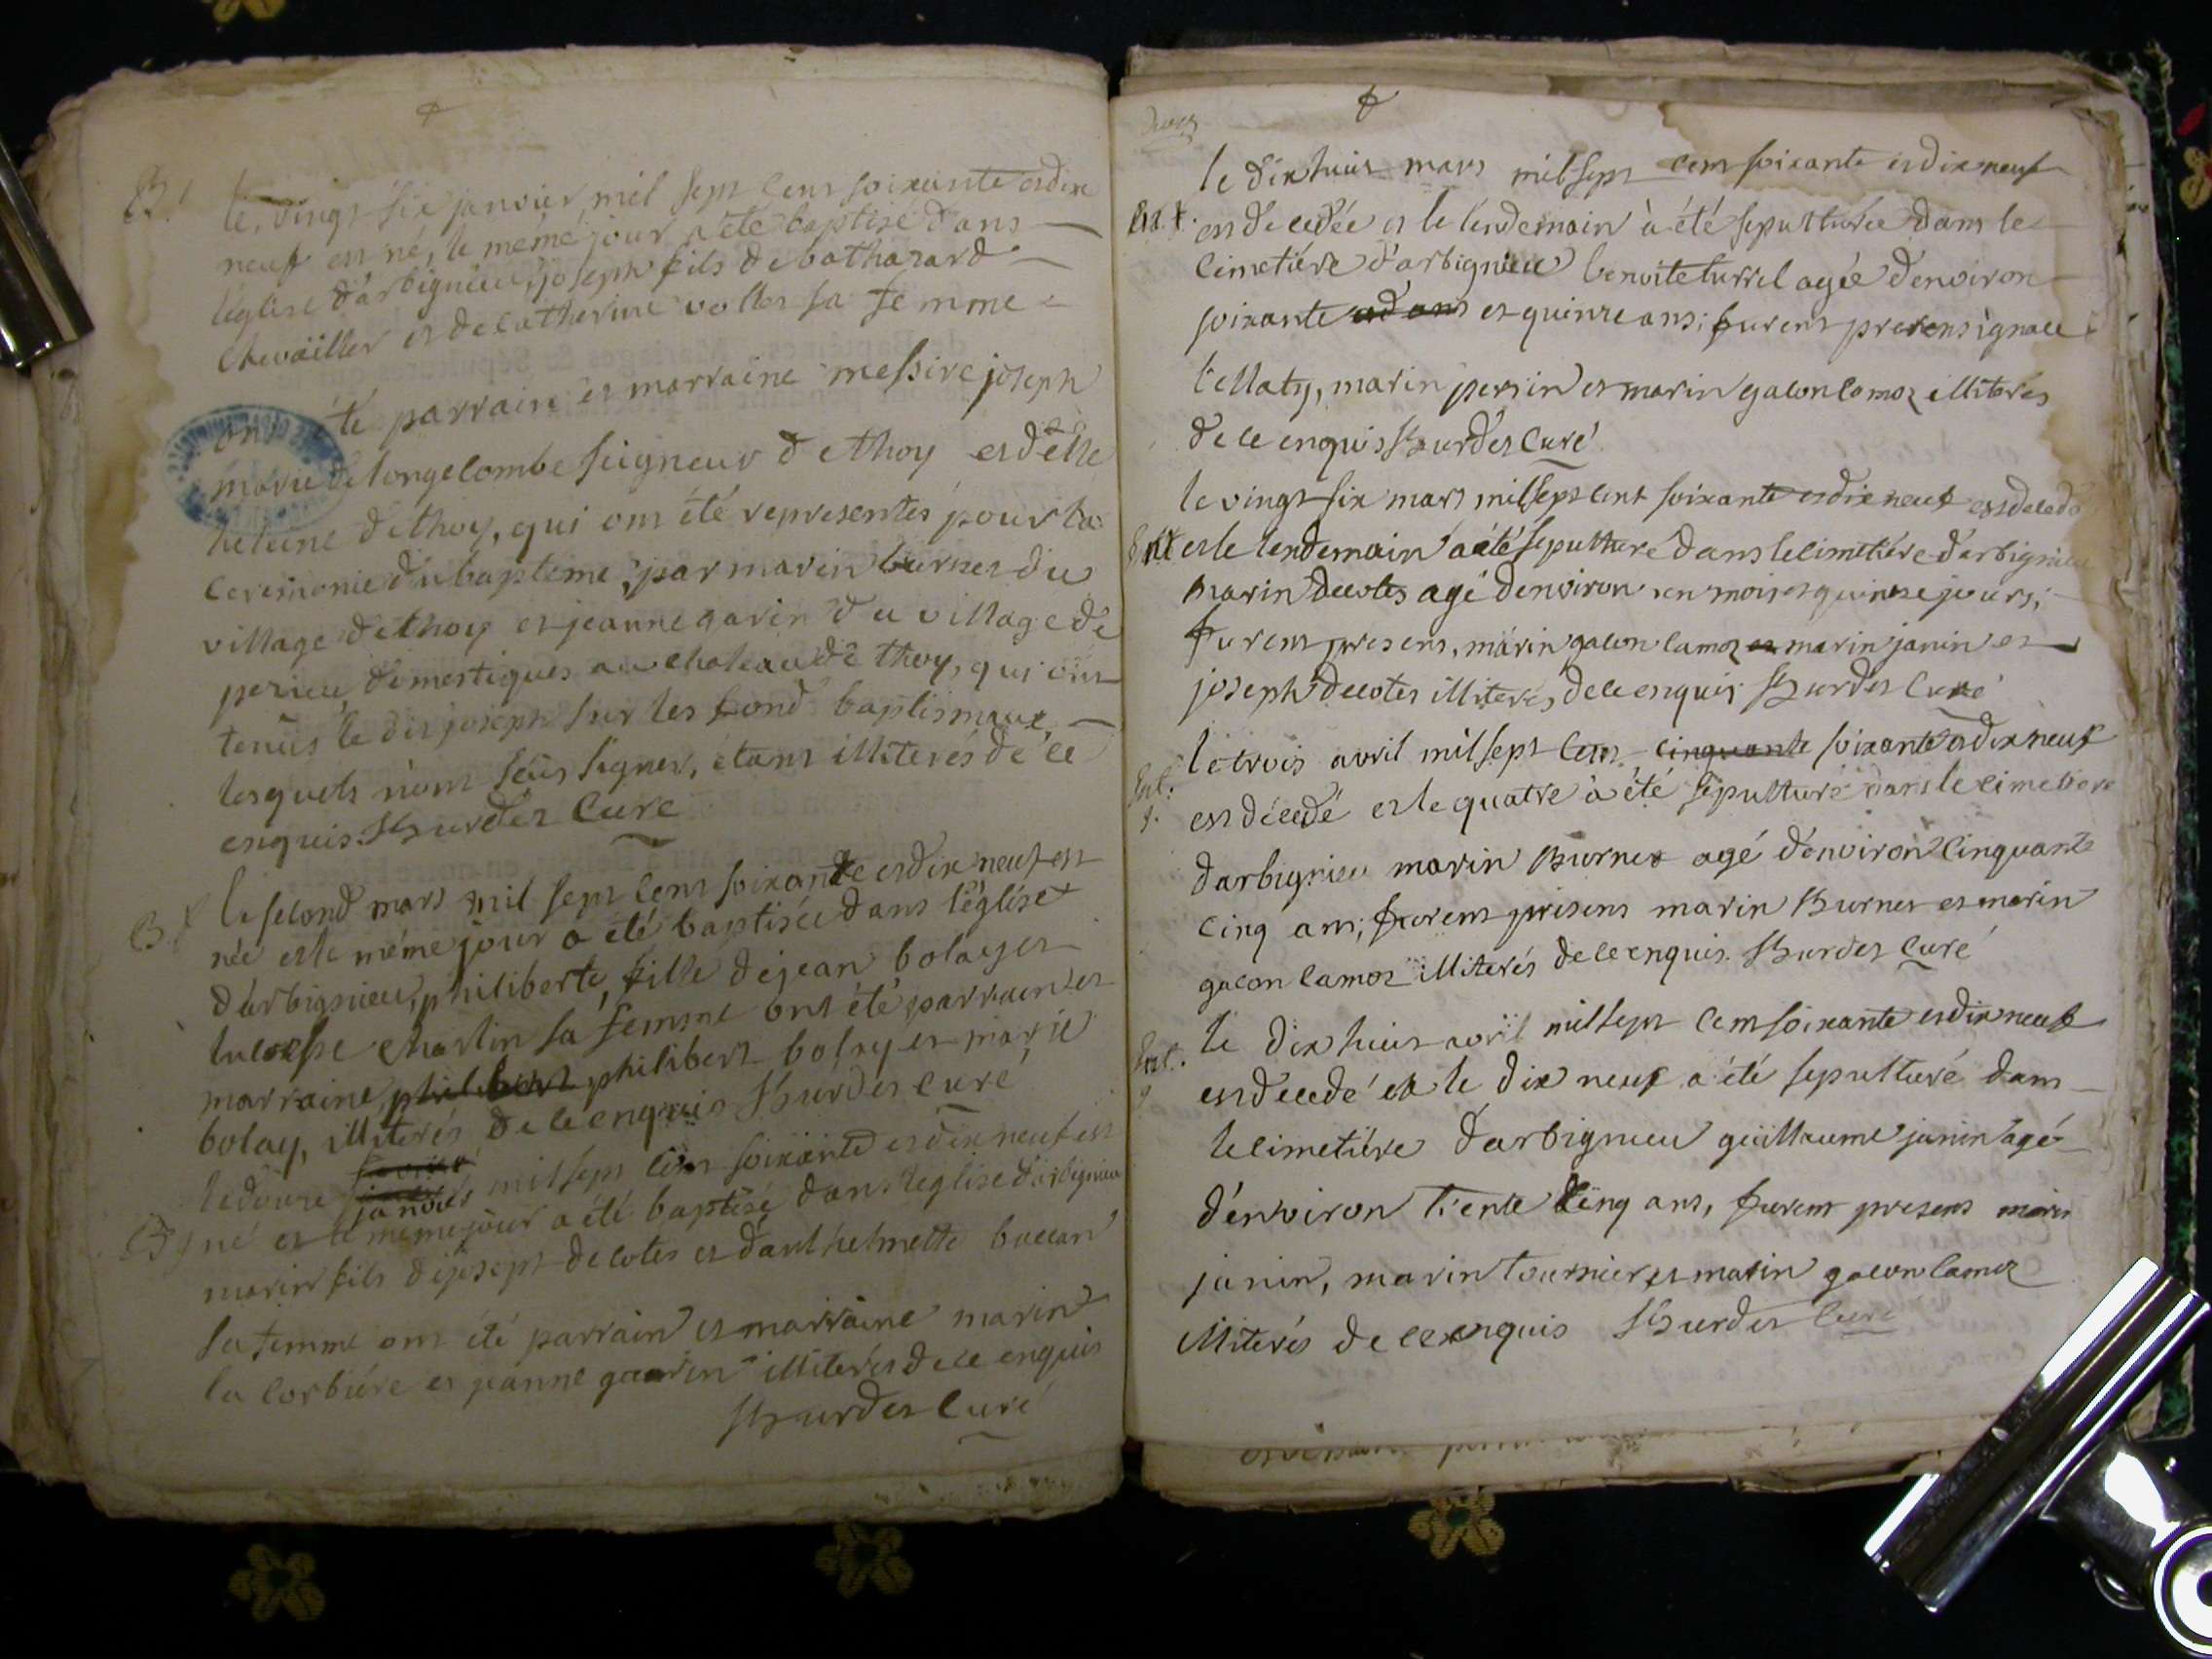 B.
le vingt six janvier mil sept cent soixante et dix
neuf est né, le même jour a été baptisé dans
l'église d'arbignieu, joseph fils de bathazard
Chevaïller et de catherine vollet sa femme
ont été parrain et marraine messire joseph
marie de longecombe seigneur de thoy et delle
helene de thoy, qui ont été representés pour la
ceremonie du baptême, par marin burnet du
village de thoy et jeanne gavin du village de
perieu, domestiques au chateau de thoy, qui ont
tenus le dit joseph sur les fond baptismaux,
lesquels n'ont seus signer, étant illiterés de ce
enquis. Burdet Curé
B. f
le second mars mil sept cent soixante et dix neuf est
née et le même jour a été baptisée dans l'église
d'arbignieu, philiberte, fille de jean bolay et
lucresse charlin sa femme ont été parrain et
marraine philibert philibert bolay et marie
bolay, illiterés de ce enquis Burdet curé
le douze janvier mil sept cent soixante et dix neuf est
B
né et le même jour a été baptisé dans l'église d'arbignieu
marin fils de joseph decotes et d'anthelmette buccan
sa femme ont été parrain et marraine marin
la corbiére et jeanne gavin illiterés de ce enquis
Burdet Curé
le dix huit mars mil sept cent soixante et dix neuf
est decedée et le lendemain à été sepulturée dans le
cimetiére d'arbignieu benoite turrel agée d'environ
soixante et dans et quinze ans; furent present ignace
bellaty, marin persin et marin gacon lamoz illiterés
de ce enquis Burdet Curé
le vingt six mars mil sept cent soixante et dix neuf est decedé
et le lendemain a été sepulturé dans le cimetiére d'arbignieu
marin decotes agé d'environ un mois et quinze jours;
furent presens, marin gacon lamoz et marin janin et
joseph decotes illiterés de ce enquis Burdet Curé
Ent.
le trois avril mil sept cent cinquante soixante et dix neuf
est décedé et le quatre à été sépulturé dans le cimetiere
d'arbignieu marin Burnet agé d'environ cinquante
cinq ans; furent présens marin Burnet et marin
gacon lamoz illiterés de ce enquis. Burdet curé
Ent.
le dix huit avril mil sept cent soixante et dix neuf
est decedé et le dix neuf a été sepulturé dans
le cimetiére d'arbignieu guillaume janin agé
d'environ trente cinq ans, furent presens marin
janin, marin tournier, et marin gacon lamoz
illiterés de ce enquis Burdet Curé